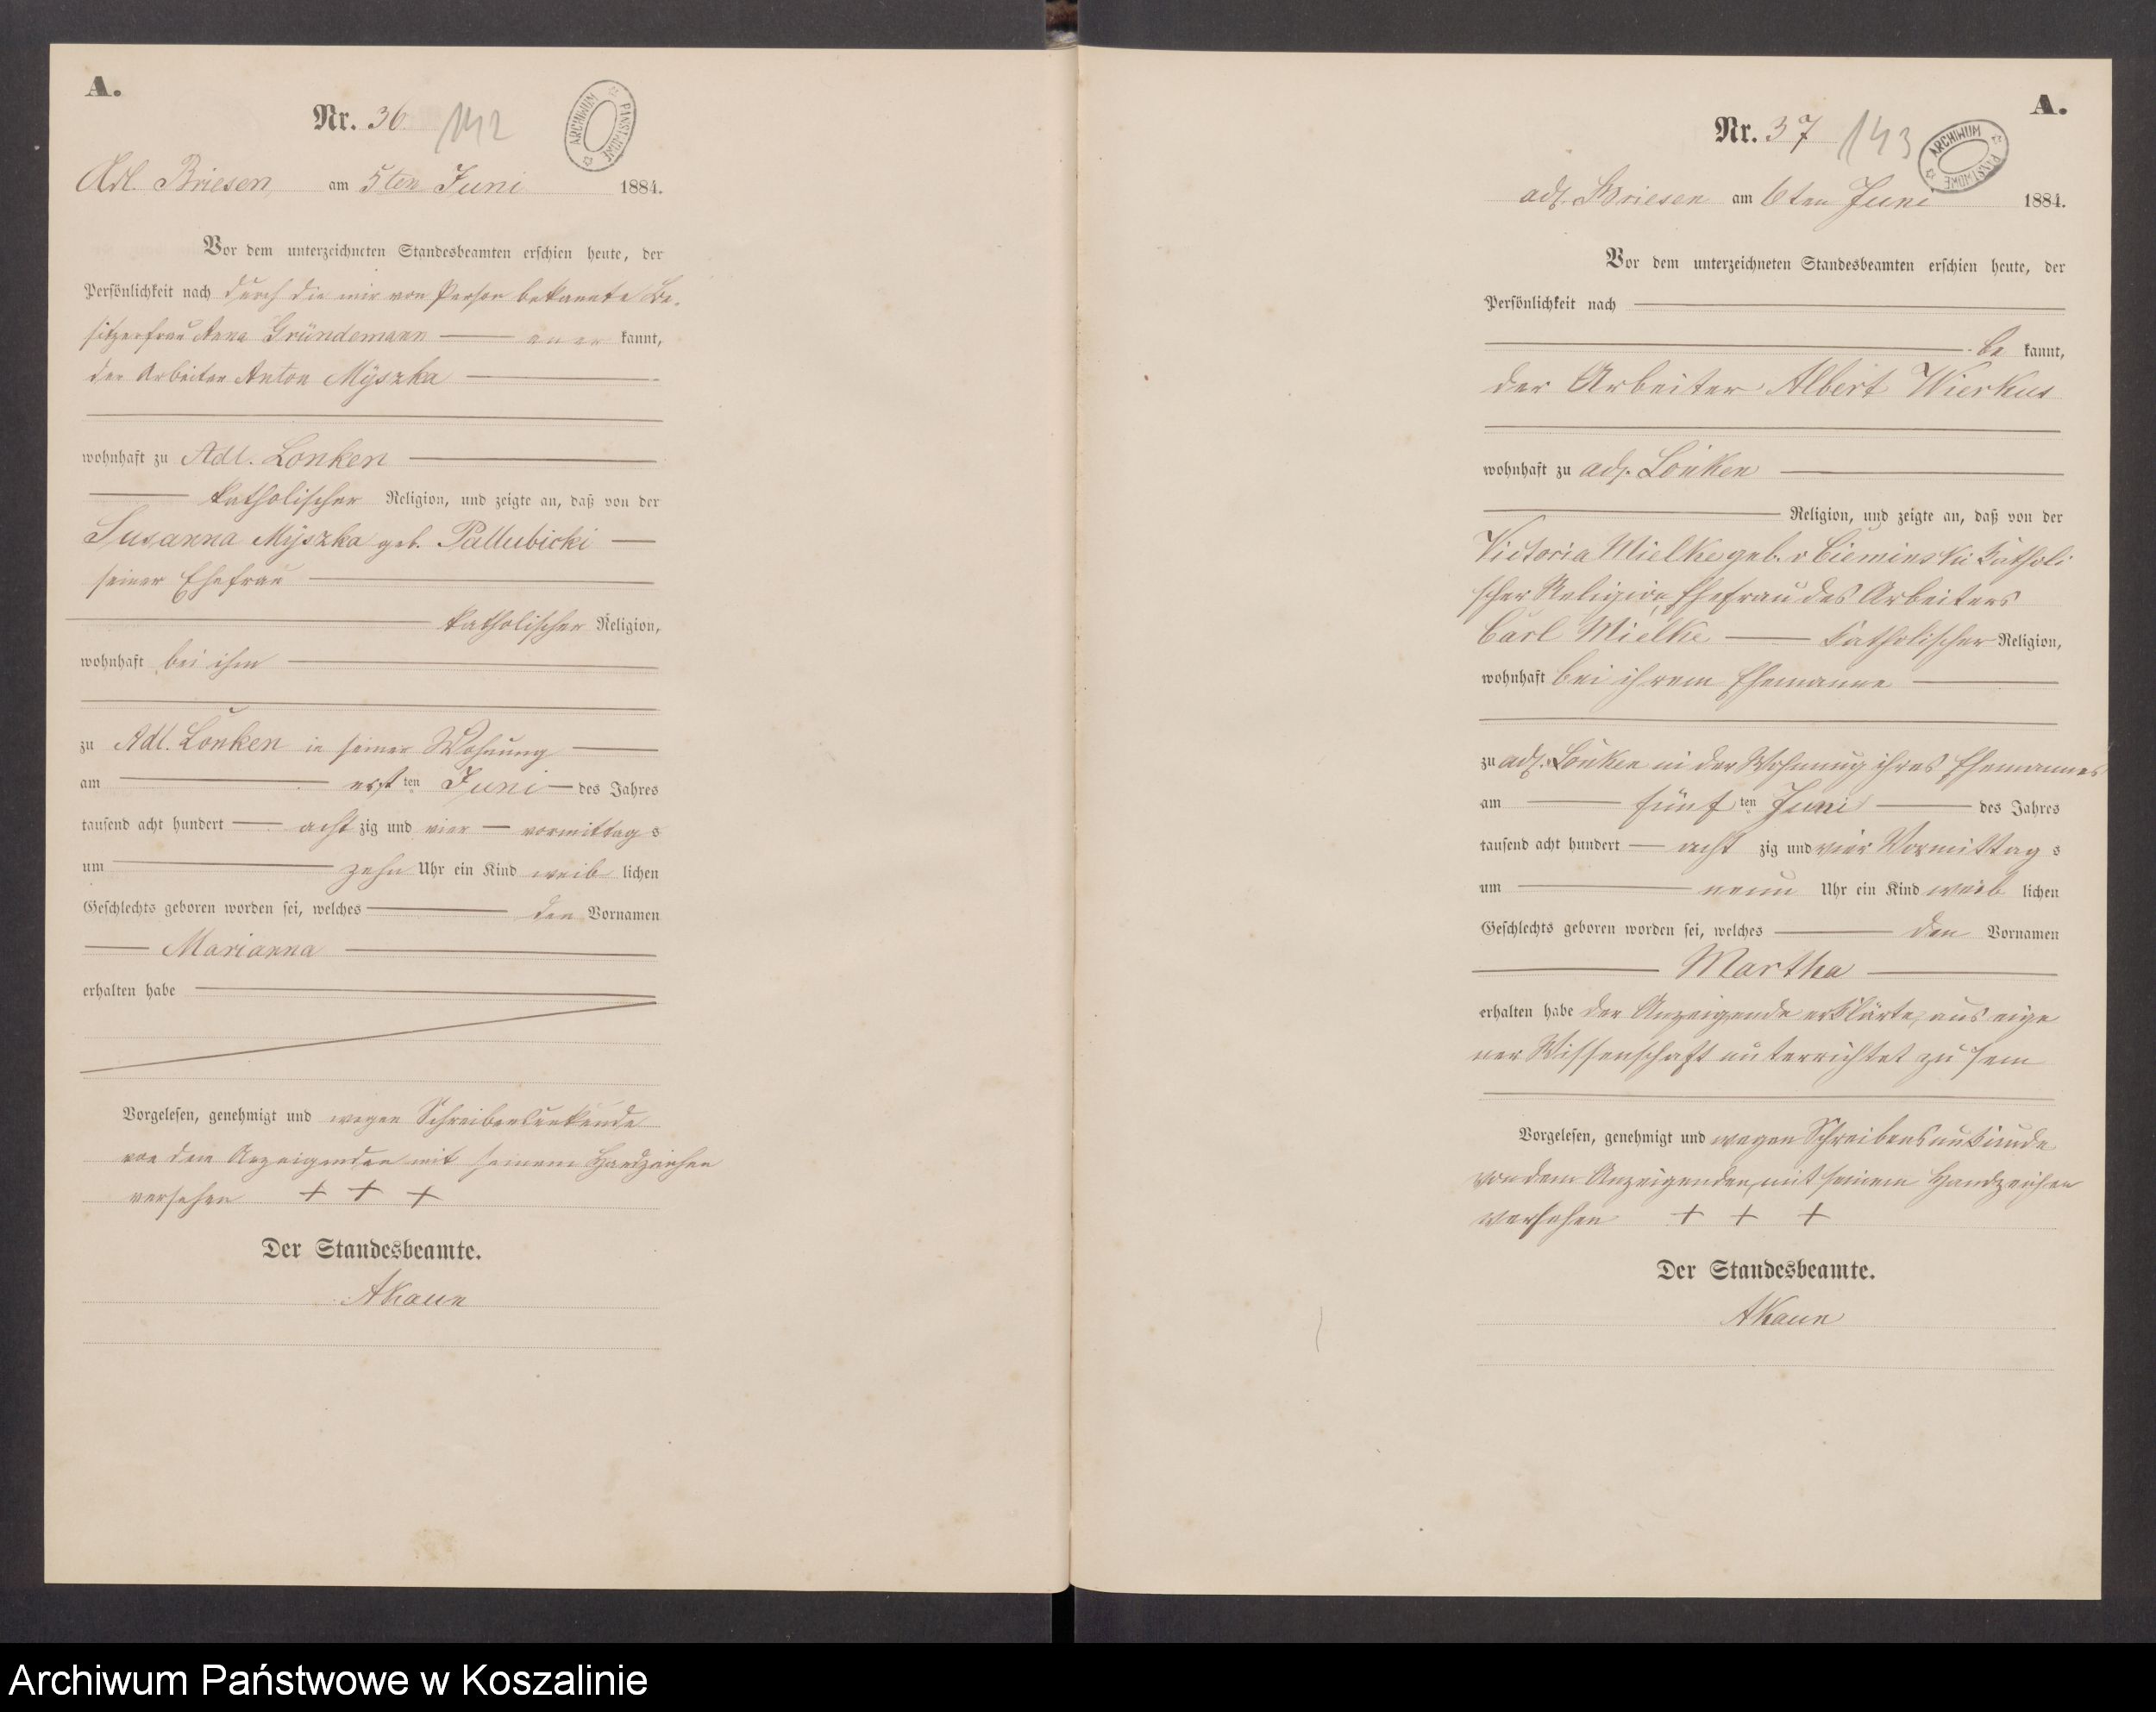 A.
Nr. 36. 142
ARCHIWUM PAŃSTWOWE
Adl. Briesen am 5ten Juni 1884.
Vor dem unterzeichneten Standesbeamten erschien heute, der
Persönlichkeit nach durch die mir von Person bekannte Be-
sitzerfrau Anna Gründemann — aner kannt,
der Arbeiter Anton Myszka —
wohnhaft zu Adl. Lonken —
— katholischer Religion, und zeigte an, daß von der
Susanna Myszka geb. Pallubicki —
seiner Ehefrau —
— katholischer Religion,
wohnhaft bei ihm —
zu Adl. Lonken in seiner Wohnung —
am — erst ten Juni — des Jahres
tausend acht hundert — acht zig und vier — vormittag s
um — zehn Uhr ein Kind weib lichen
Geschlechts geboren worden sei, welches — den Vornamen
— Marianna —
erhalten habe —
Vorgelesen, genehmigt und wegen Schreibensunkunde
von dem Anzeigenden mit seinem Handzeichen
versehen + + +
Der Standesbeamte.
AKaun
A.
Nr. 37 143
ARCHIWUM PAŃSTWOWE
adl. Briesen am 6ten Juni 1884.
Vor dem unterzeichneten Standesbeamten erschien heute, der
Persönlichkeit nach —
— be kannt,
der Arbeiter Albert Wierkus
wohnhaft zu adl. Lonken —
— Religion, und zeigte an, daß von der
Victoria Mielke geb. v Cieminski Katholi
scher Religion, Ehefrau des Arbeiters
Carl Mielke — Katholischer Religion,
wohnhaft bei ihrem Ehemanne —
zu adl. Lonken in der Wohnung ihres Ehemannes
am — fünf ten Juni — des Jahres
tausend acht hundert — acht zig und vier Vormittag s
um — neun Uhr ein Kind weib lichen
Geschlechts geboren worden sei, welches — den Vornamen
— Martha —
erhalten habe der Anzeigende erklärte, aus eige
ner Wissenschaft unterrichtet zu sein
Vorgelesen, genehmigt und wegen Schreibensunkunde
von dem Anzeigenden mit seinem Handzeichen
versehen + + +
Der Standesbeamte.
AKaun
Archiwum Państwowe w Koszalinie